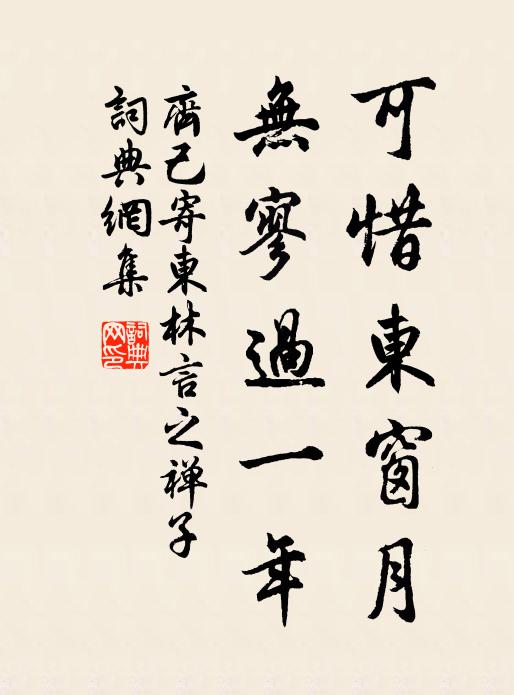 可惜東窗月
無寥過一年
齊己寄東林言之禅子
詞典網集
詞典网印